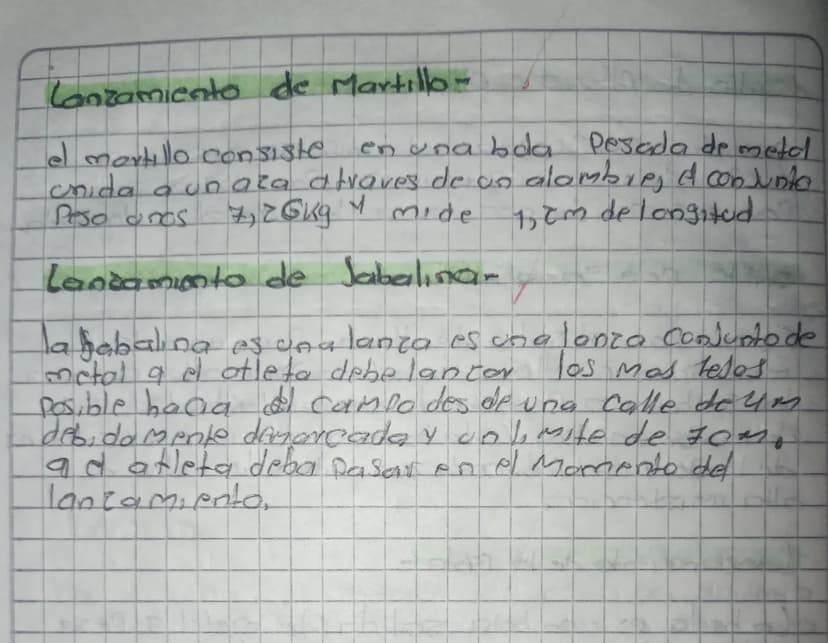 Lanzamiento de Martillo-
el martillo consiste en una bola Pesada de metal
unida a un aza atraves de un alambre, el conjunto
Peso unos 7,26kg y mide 1,2m de longitud
Lanzamiento de Jabalina-
la Jabalina es una lanza es una lonza conjunto de
metal q el atleta debe lanzar los mas lejos
posible hacia el campo desde una calle de 4m
debidamente demarcada y un limite de 70m,
q el atleta deba pasar en el Momento del
lanzamiento.